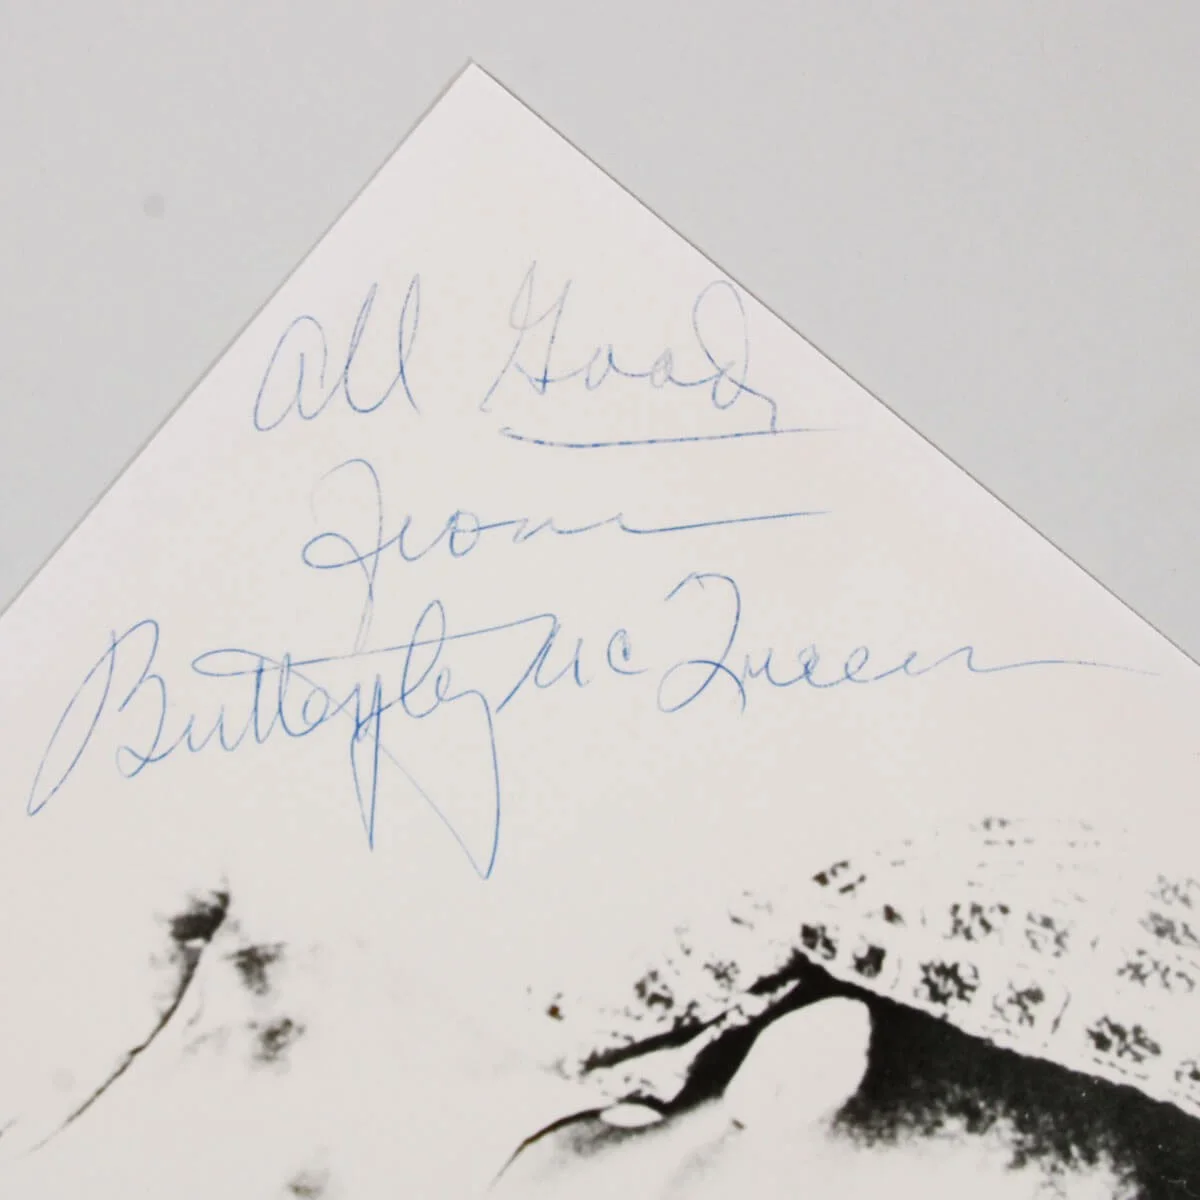 All Good
From
Butterfly McQueen